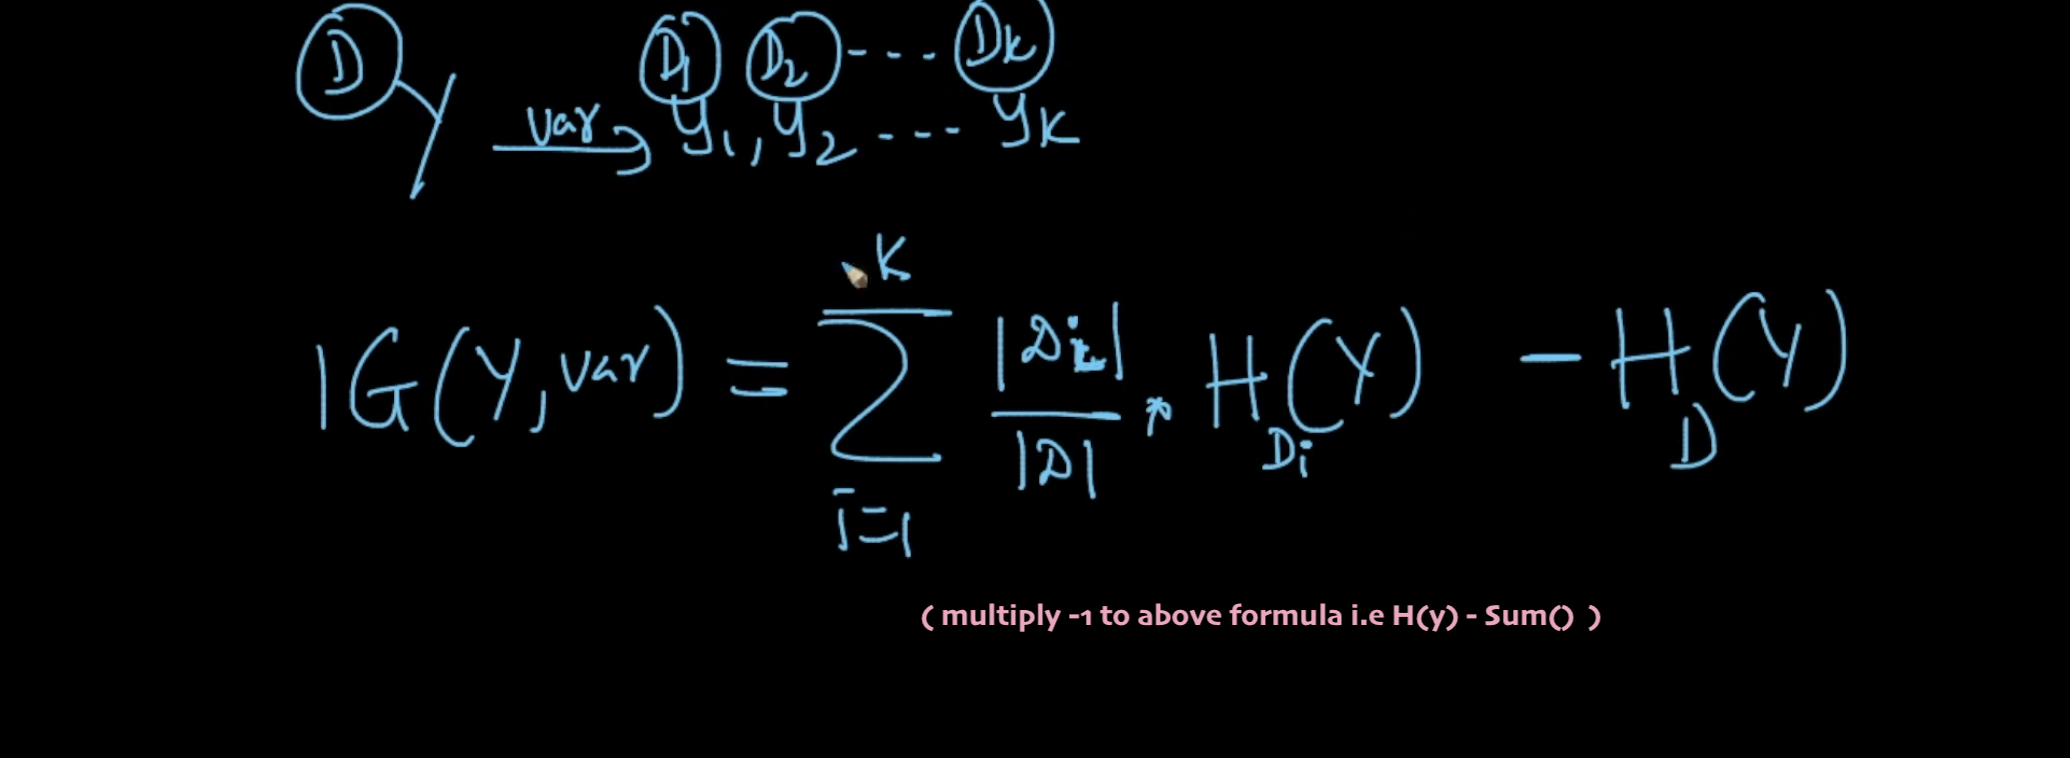 D D1 D2 --- Dk
Y var y1, y2 --- yk
IG(Y, var) = K Σ i=1 |Di| / |D| * H Di (Y) - H D (Y)
( multiply -1 to above formula i.e H(y) - Sum() )